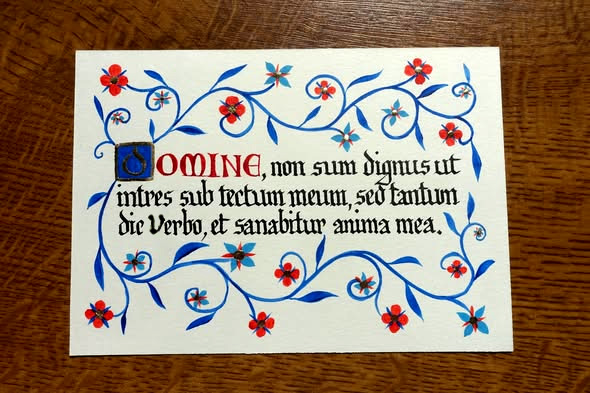 DOMINE, non sum dignus ut
intres sub tectum meum, sed tantum
dic verbo, et sanabitur anima mea.